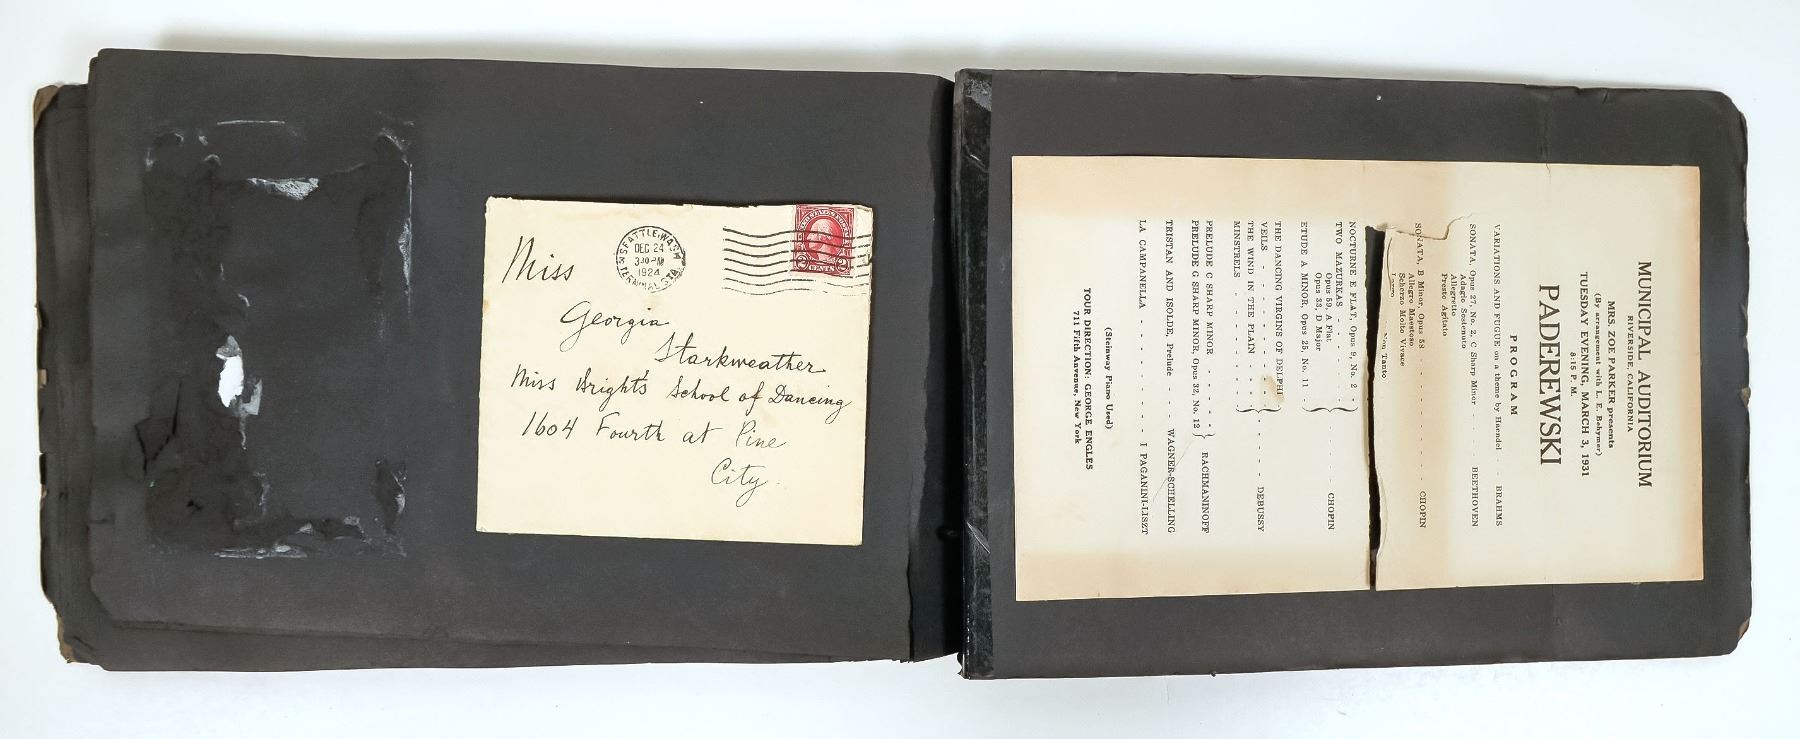 SEATTLE, WASH.
DEC 24
3 30 PM
1924
TERMINAL STA.
2 CENTS 2
Miss
Georgia
Starkweather
Miss Bright's School of Dancing
1604 Fourth at Pine
City.
MUNICIPAL AUDITORIUM
RIVERSIDE, CALIFORNIA
MRS. ZOE PARKER presents
(By arrangement with L. E. Behymer)
TUESDAY EVENING, MARCH 3, 1931
8:15 P. M.
PADEREWSKI
PROGRAM
VARIATIONS AND FUGUE on a theme by Haendel - - BRAHMS
SONATA, Opus 27, No. 2, C Sharp Minor - - - BEETHOVEN
Adagio Sostenuto
Allegretto
Presto Agitato
SONATA, B Minor, Opus 58 - - - - - - - CHOPIN
Allegro Maestoso
Scherzo Molto Vivace
Largo
Non Tanto
NOCTURNE E FLAT, Opus 9, No. 2 - -
TWO MAZURKAS - - - - - - -
Opus 59, A Flat
Opus 33, D Major
ETUDE A MINOR, Opus 25, No. 11 - -
CHOPIN
THE DANCING VIRGINS OF DELPHI
VEILS - - - - - - - -
THE WIND IN THE PLAIN - - - -
MINSTRELS - - - - - - - -
DEBUSSY
PRELUDE C SHARP MINOR - - - - -
PRELUDE G SHARP MINOR, Opus 32, No. 12
RACHMANINOFF
TRISTAN AND ISOLDE, Prelude - - - WAGNER-SCHELLING
LA CAMPANELLA - - - - - - - - PAGANINI-LISZT
(Steinway Piano Used)
TOUR DIRECTION: GEORGE ENGLES
711 Fifth Anvenue, New York